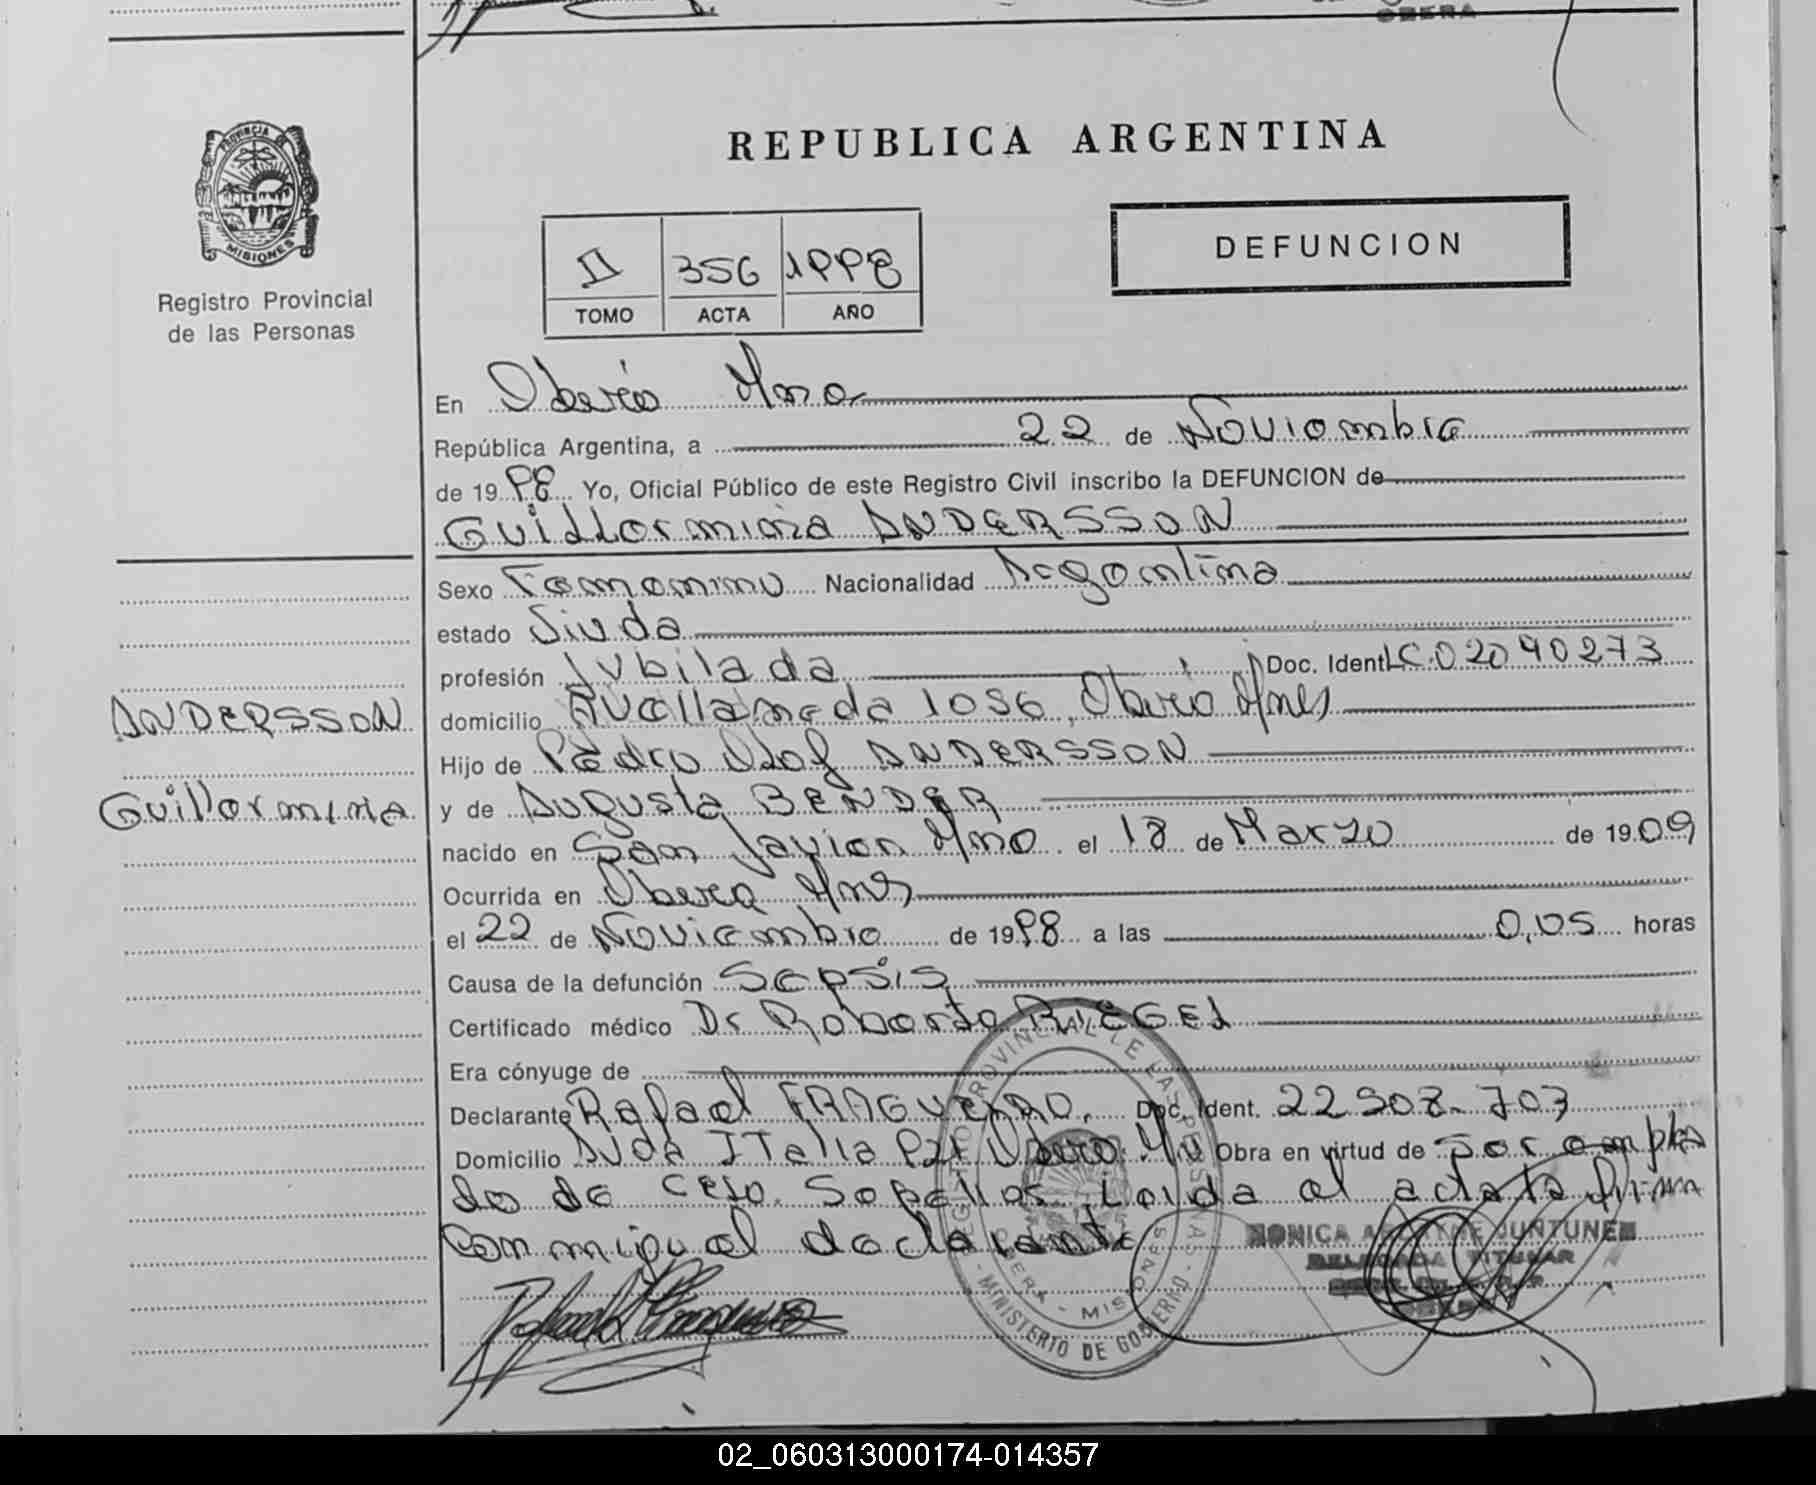 OBERA
PROVINCIA DE
MISIONES
Registro Provincial
de las Personas
REPUBLICA ARGENTINA
DEFUNCION
II 356 1998
TOMO ACTA AÑO
En Oberá Mnes
República Argentina, a 22 de Noviembre
de 1998 Yo, Oficial Público de este Registro Civil inscribo la DEFUNCION de
Guillermina ANDERSSON
Sexo Femenino Nacionalidad Argentina
estado Viuda
profesión Jubilada Doc. Ident LC.02040273
ANDERSSON
domicilio Avellaneda 1056, Oberá Mnes
Hijo de Pedro Olof ANDERSSON
Guillermina
y de Augusta BENDER
nacido en San Javier Mnes el 18 de Marzo de 1909
Ocurrida en Oberá Mnes
el 22 de Noviembre de 1998 a las 0,05 horas
Causa de la defunción Sepsis
Certificado médico Dr Roberto RIEGEL
Era cónyuge de
Declarante Rafael Doc. Ident. 22.508.703
Domicilio Avda Italia Oberá Obra en virtud de Ser emplea
do de Sepelios Leida el acta la firma
conmigo el declarante
REGISTRO PROVINCIAL DE LAS PERSONAS
OBERA - MISIONES
- MINISTERIO DE GOBIERNO -
MONICA JUNTUNEN
DELEGADA TITULAR
02_060313000174-014357